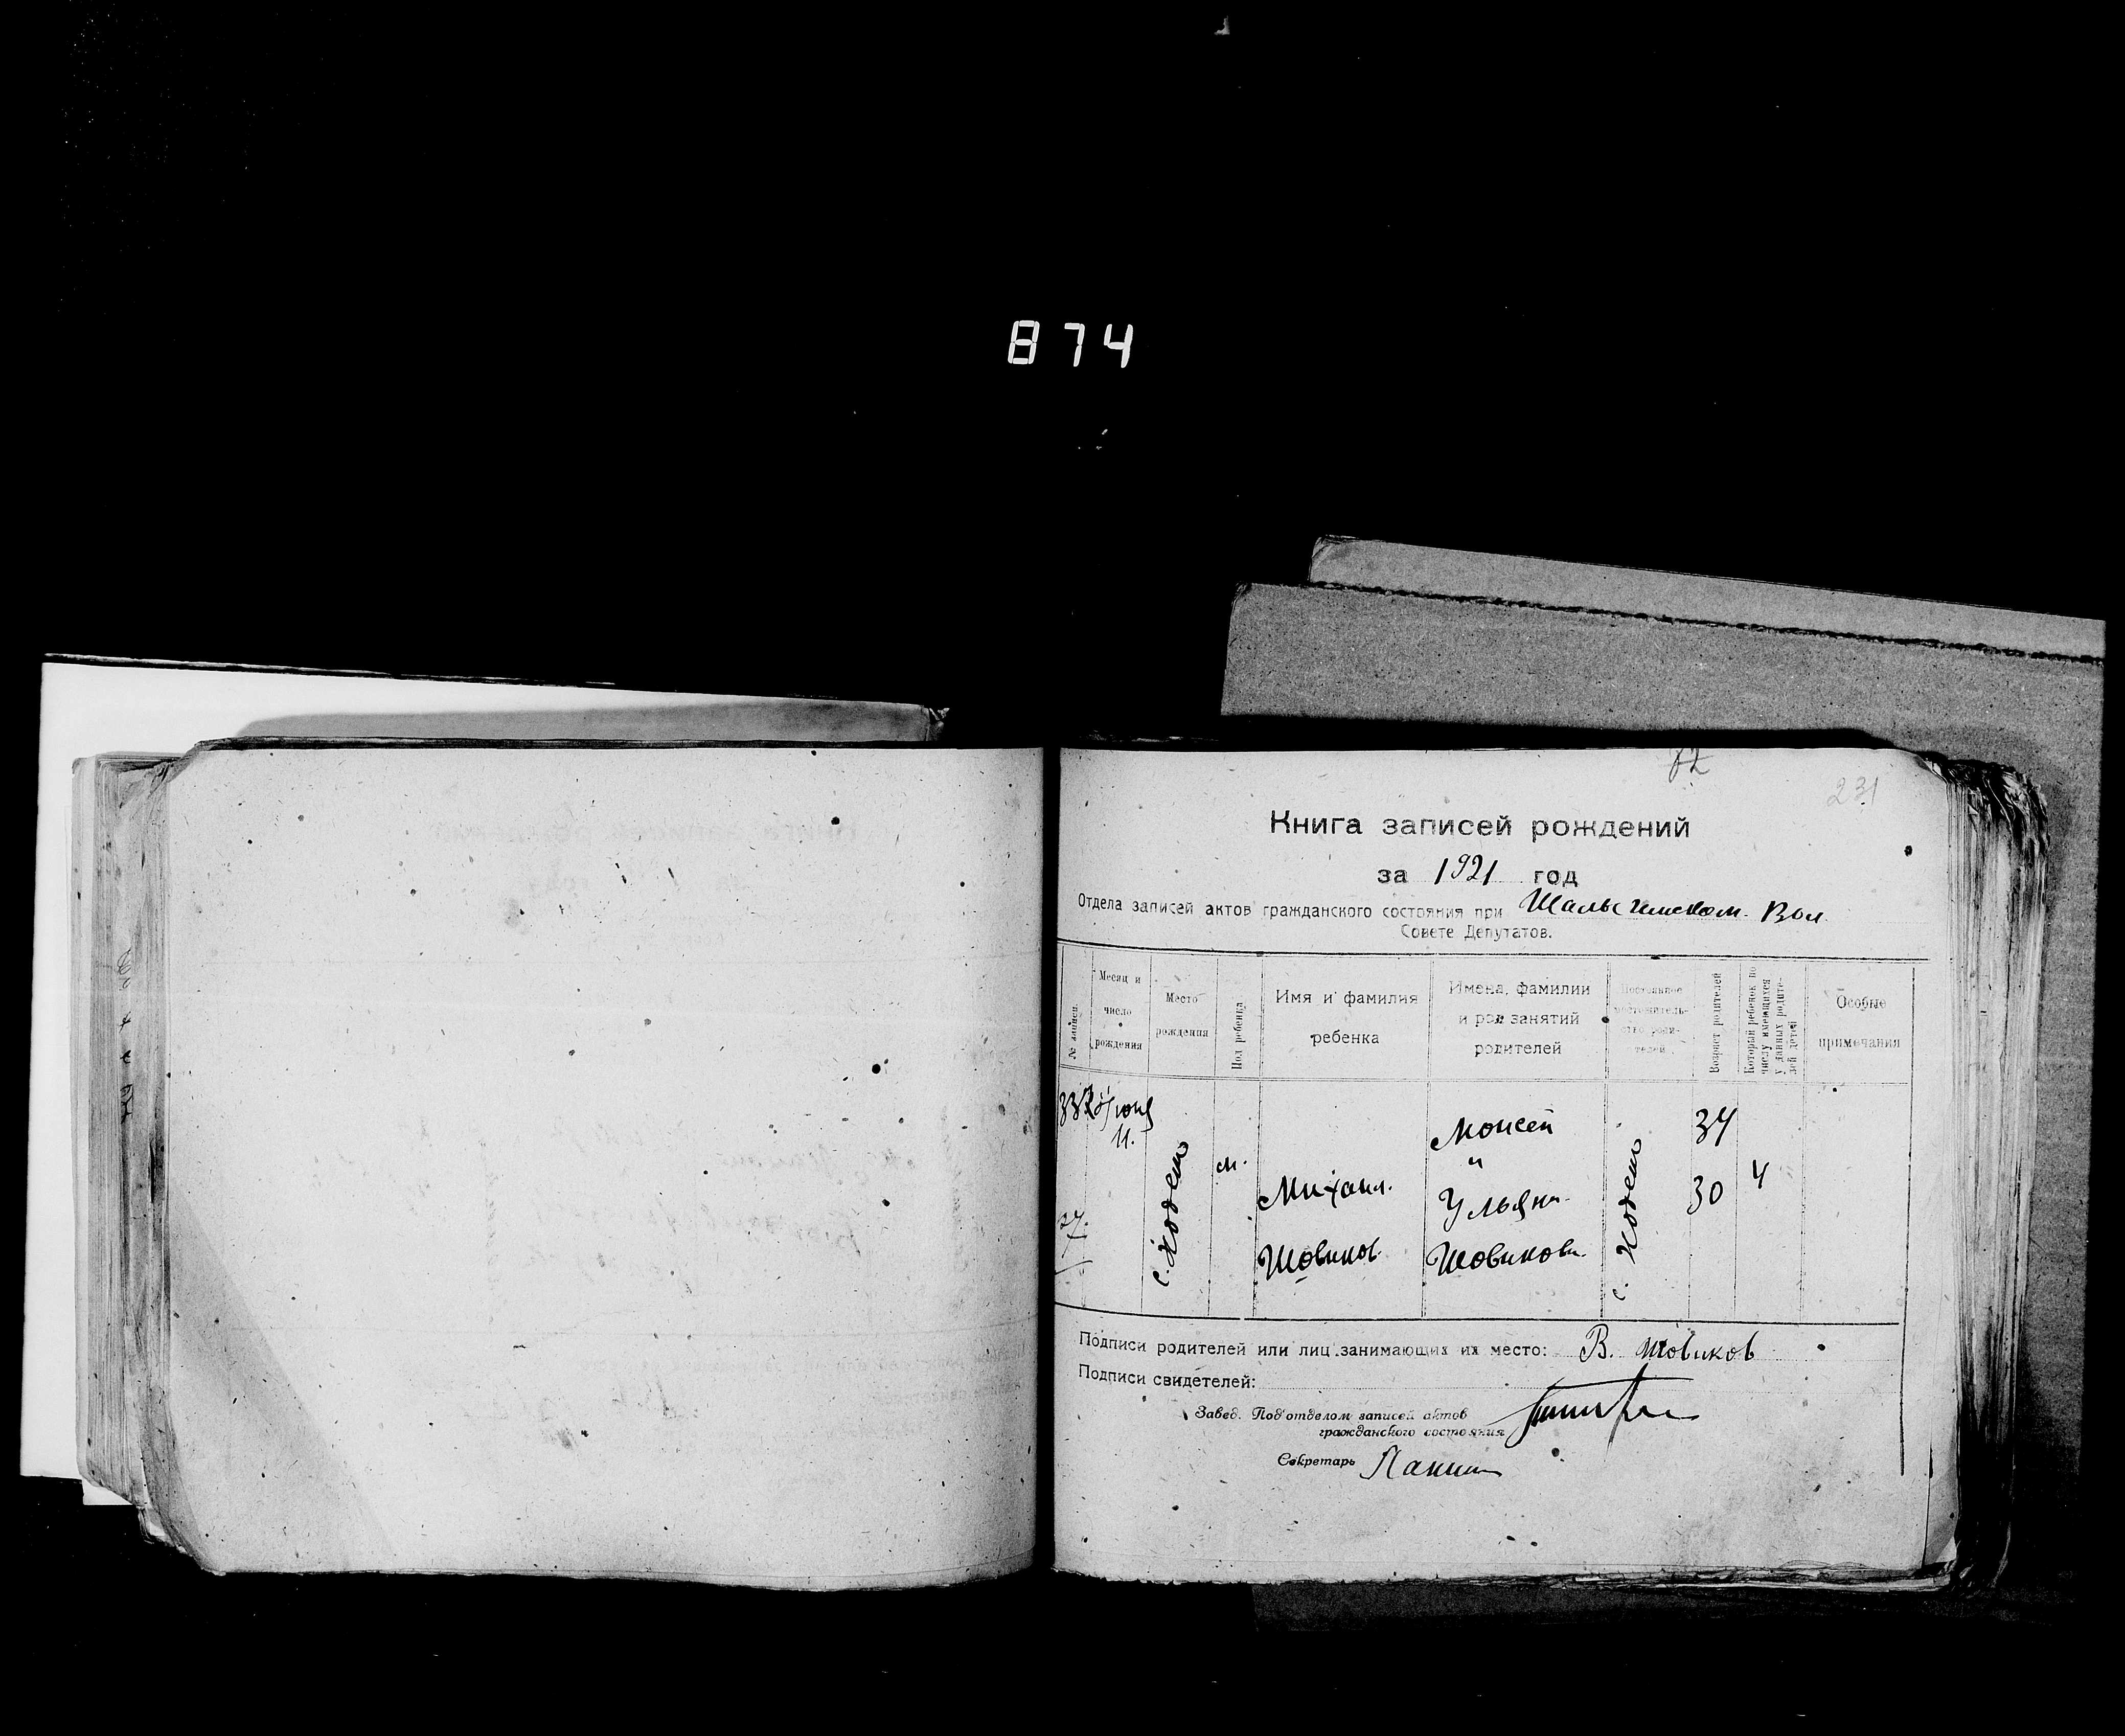 874
82
231
Книга записей рождений
за 1921 год
Отдела записей актов гражданского состояния при Шалыгинском. Вол.
Совете Депутатов.
№ записи.
Месяц и число рождения
Место рождения
Пол ребенка
Имя и фамилия ребенка
Имена, фамилии и род занятий родителей
Постоянное местожительство родителей
Возраст родителей
Который ребенок по числу имеющихся у данных родителей детей
Особые примечания
с. Ходено
м.
Михаил.
Шовиков.
Моисей
и
Ульяна
Шовиковы.
с. Ходено
34
30
4
Подписи родителей или лиц занимающих их место: В. Шовиков
Подписи свидетелей:
Завед. Под'отделом записей актов
гражданского состояния
Секретарь